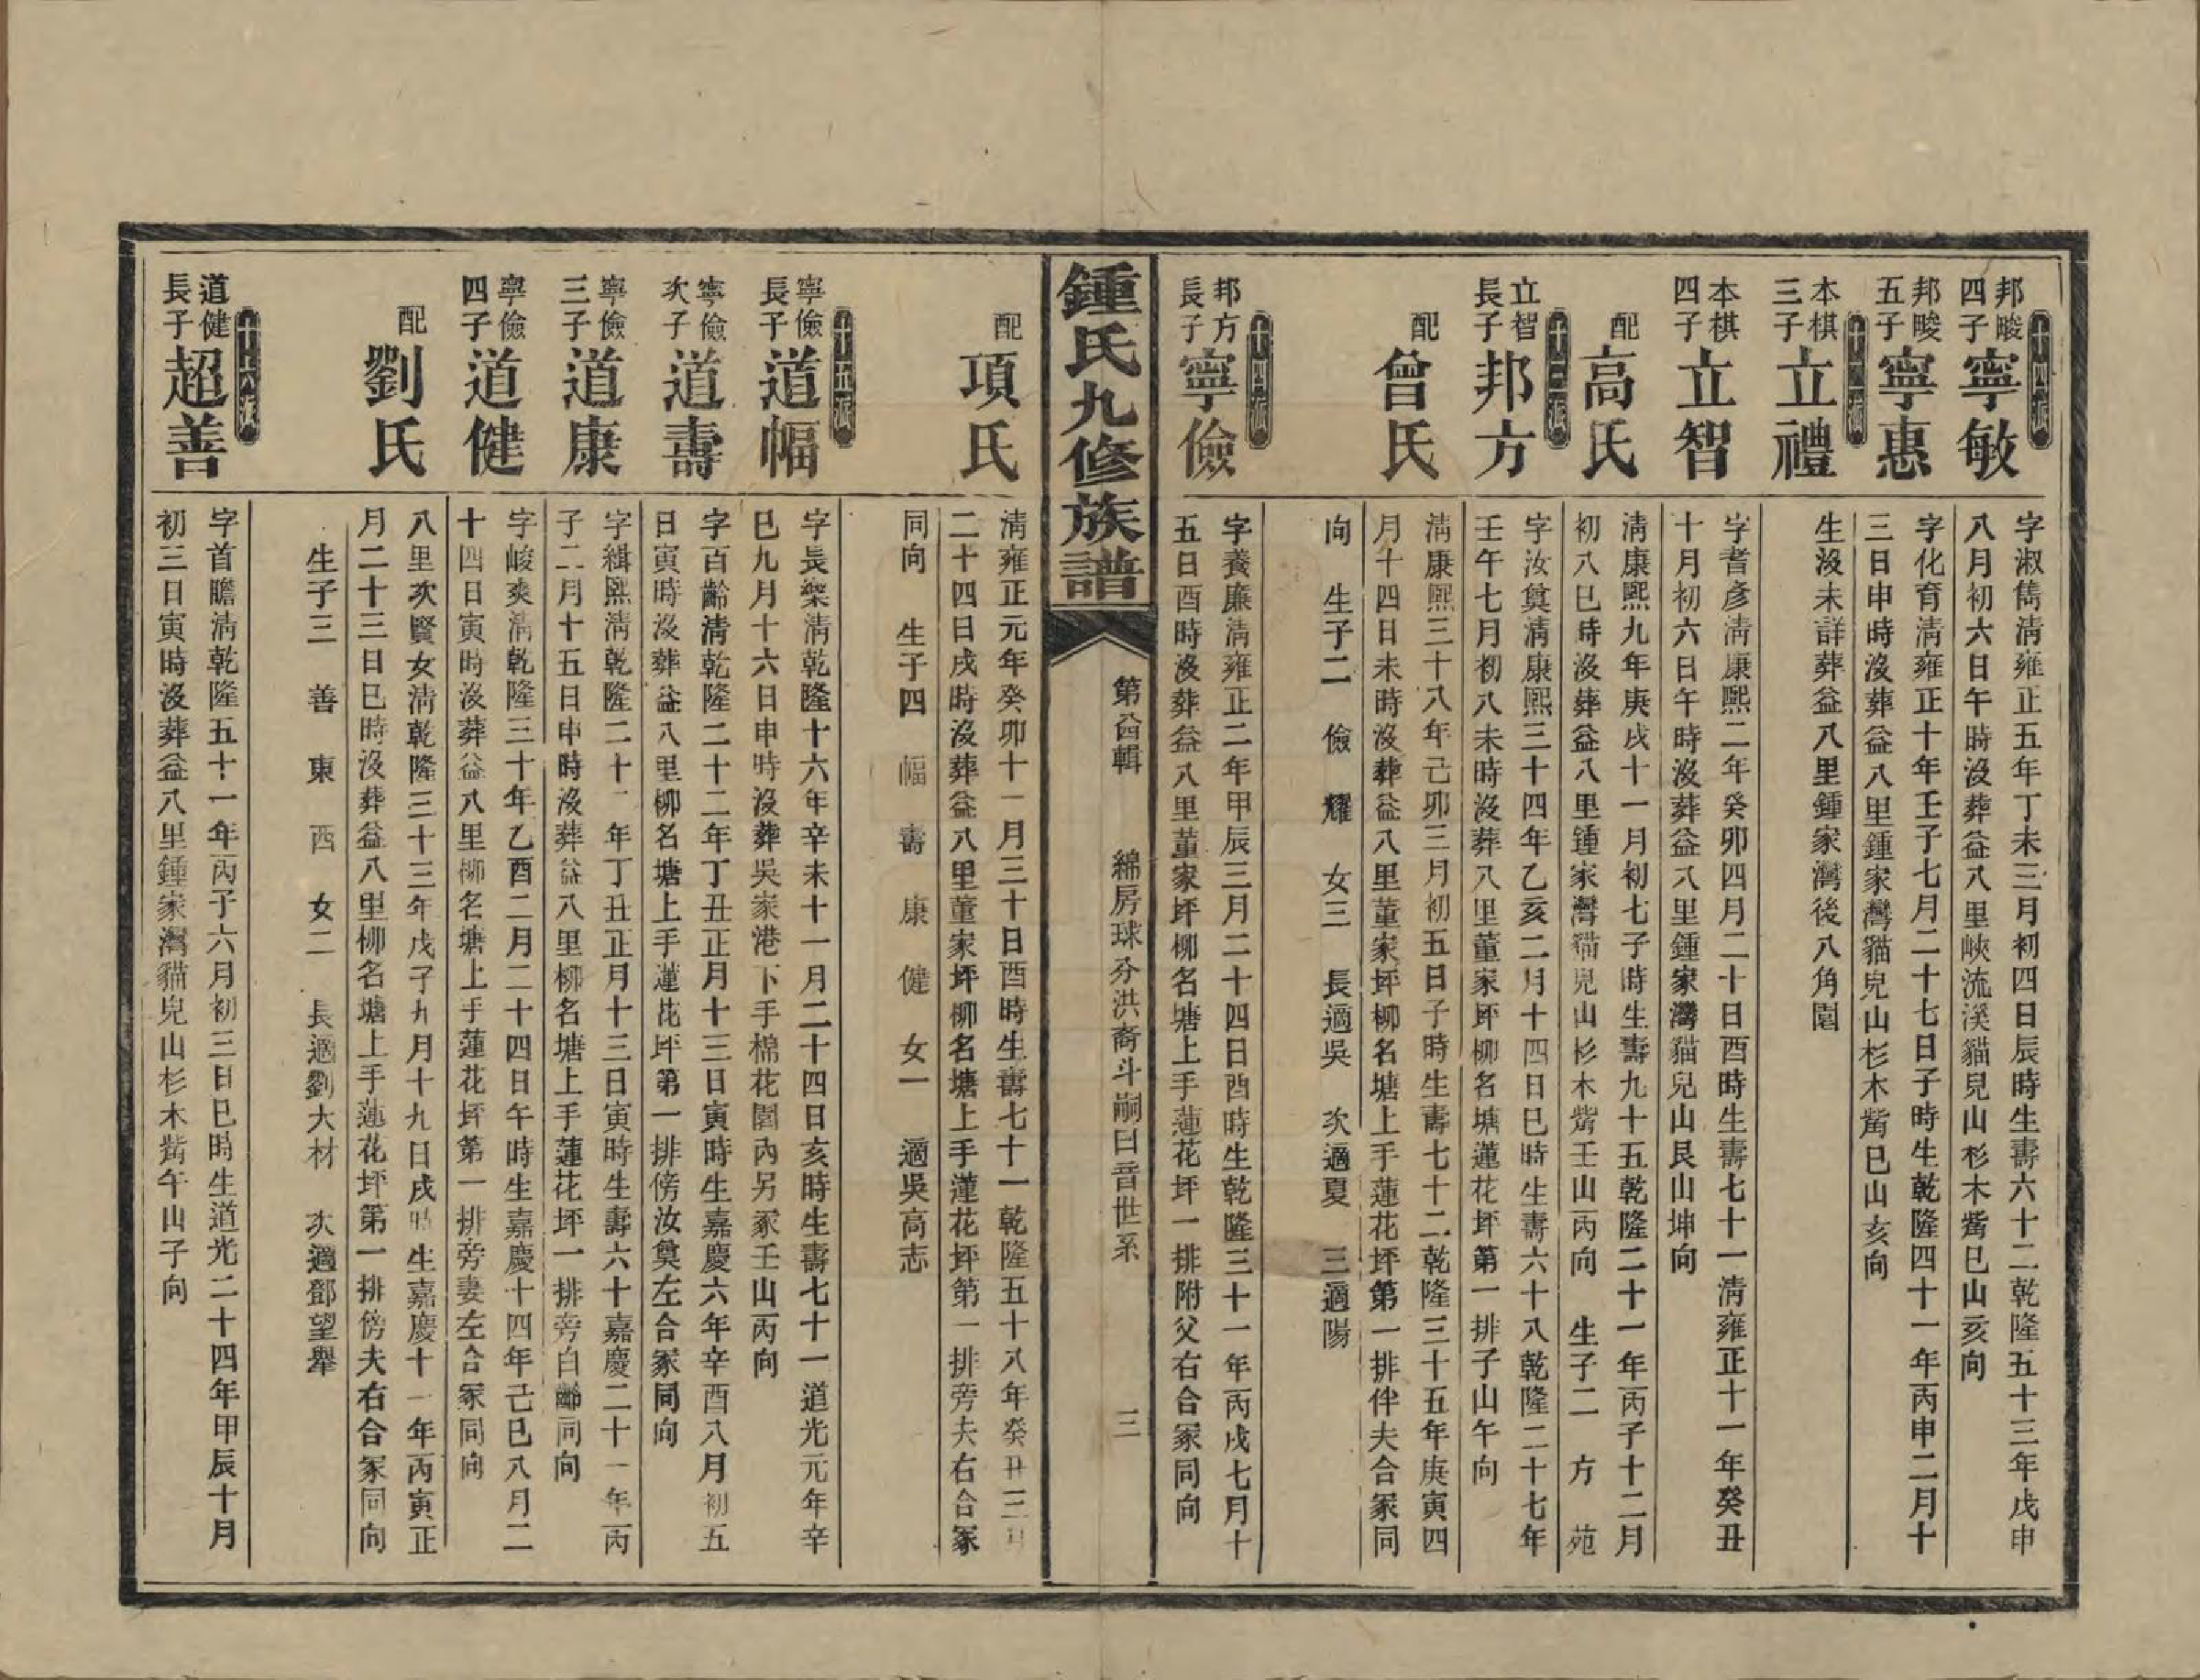 十四派
邦畯四子
寧敏
字淑雋清雍正五年丁未三月初四日辰時生壽六十二乾隆五十三年戊申
八月初六日午時沒葬益八里峽流溪貓兒山杉木觜巳山亥向
邦畯五子
寧惠
字化育清雍正十年壬子七月二十七日子時生乾隆四十一年丙申二月十
三日申時沒葬益八里鍾家灣貓兒山杉木觜巳山亥向
本棋三子
立禮
生沒未詳葬益八里鍾家灣後八角園
本棋四子
立智
字耆彥清康熙二年癸卯四月二十日酉時生壽七十一清雍正十一年癸丑
十月初六日午時沒葬益八里鍾家灣貓兒山艮山坤向
配
高氏
清康熙九年庚戌十一月初七子時生壽九十五乾隆二十一年丙子十二月
初八巳時沒葬益八里鍾家灣貓兒山杉木觜壬山丙向 生子二 方 苑
十三派
立智長子
邦方
字汝奠清康熙三十四年乙亥二月十四日巳時生壽六十八乾隆二十七年
壬午七月初八未時沒葬八里董家坪柳名塘蓮花坪第一排子山午向
配
曾氏
清康熙三十八年己卯三月初五日子時生壽七十二乾隆三十五年庚寅四
月十四日未時沒葬益八里董家坪柳名塘上手蓮花坪第一排伴夫合冢同
向 生子二 儉 耀 女三 長適吳 次適夏 三適陽
十四派
邦方長子
寧儉
字養廉清雍正二年甲辰三月二十四日酉時生乾隆三十一年丙戌七月十
五日酉時沒葬益八里董家坪柳名塘上手蓮花坪一排附父右合冢同向
鍾氏九修族譜
第酋輯
綿房球分洪裔斗嗣曰音世系
三
配
項氏
清雍正元年癸卯十一月三十日酉時生壽七十一乾隆五十八年癸丑三月
二十四日戌時沒葬益八里董家坪柳名塘上手蓮花坪第一排旁夫右合冢
同向 生子四 幅 壽 康 健 女一 適吳高志
十五派
寧儉長子
道幅
字長樂清乾隆十六年辛未十一月二十四日亥時生壽七十一道光元年辛
巳九月十六日申時沒葬吳家港下手棉花園內另冢壬山丙向
寧儉次子
道壽
字百齡清乾隆二十二年丁丑正月十三日寅時生嘉慶六年辛酉八月初五
日寅時沒葬益八里柳名塘上手蓮花坪第一排傍汝奠左合冢同向
寧儉三子
道康
字緝熙清乾隆二十二年丁丑正月十三日寅時生壽六十嘉慶二十一年丙
子二月十五日申時沒葬益八里柳名塘上手蓮花坪一排旁白齡同向
寧儉四子
道健
字峻爽清乾隆三十年乙酉二月二十四日午時生嘉慶十四年己巳八月二
十四日寅時沒葬益八里柳名塘上手蓮花坪第一排旁妻左合冢同向
配
劉氏
八里次賢女清乾隆三十三年戊子九月十九日戌時生嘉慶十一年丙寅正
月二十三日巳時沒葬益八里柳名塘上手蓮花坪第一排傍夫右合冢同向
生子三 善 東 西 女二 長適劉大材 次適鄧望舉
十六派
道健長子
超善
字首瞻清乾隆五十一年丙子六月初三日巳時生道光二十四年甲辰十月
初三日寅時沒葬益八里鍾家灣貓兒山杉木觜午山子向